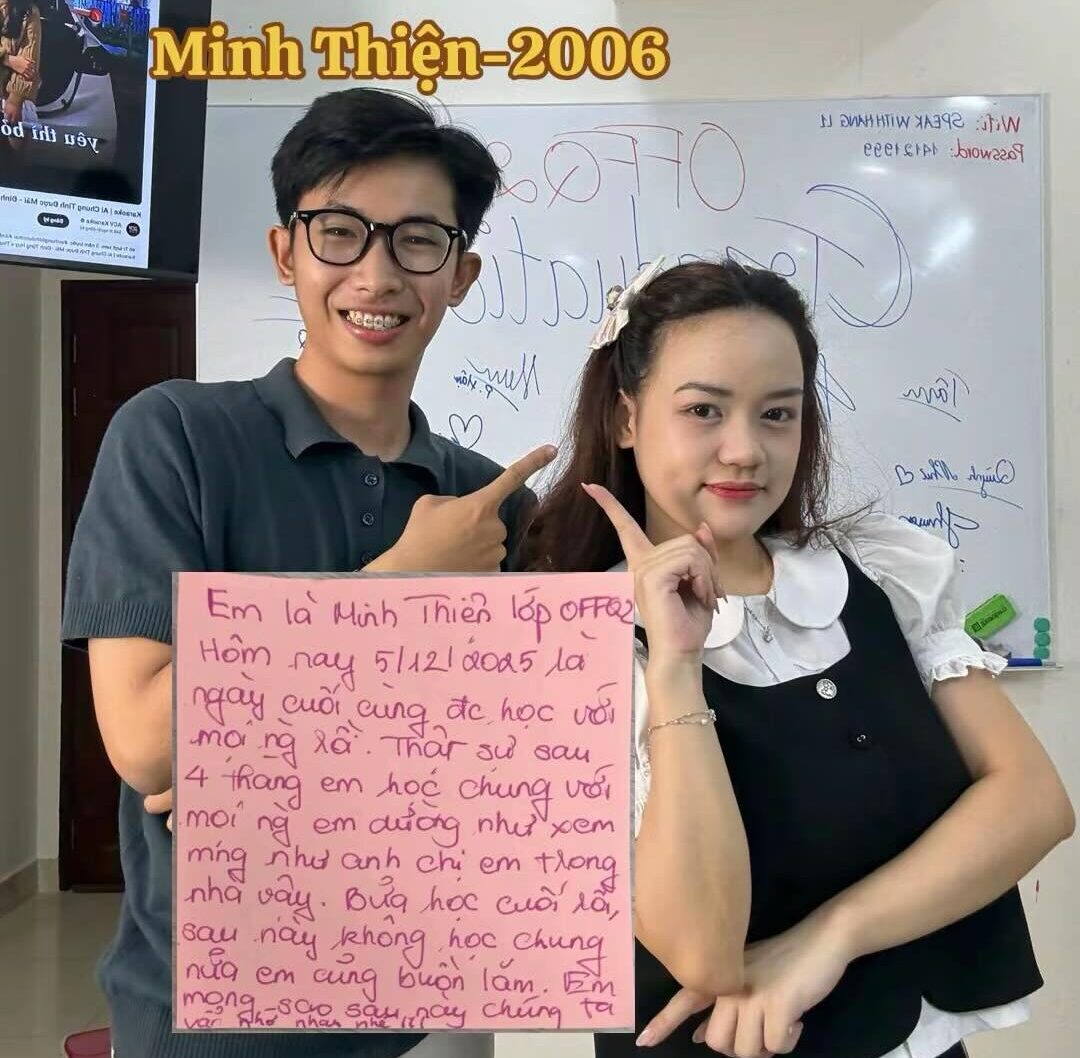 Minh Thiện-2006
yêu thì bỏ
Karaoke | Ai Chung Tình Được Mãi - Đinh
ACV Karaoke
Đăng ký
Wifi: SPEAK WITH HANG L1
Password: 14121999
OFFQ2
Graduation
Tâm
Quỳnh Như
Em là Minh Thiện lớp OFFQ2
Hôm nay 5/12/2025 là
ngày cuối cùng đc học với
mọi ng rồi. Thật sự sau
4 tháng em học chung với
mọi ng em dường như xem
mng như anh chị em trong
nhà vậy. Bữa học cuối rồi,
sau này không học chung
nữa em cũng buồn lắm. Em
mong sao sau này chúng ta
vẫn nhớ nhau